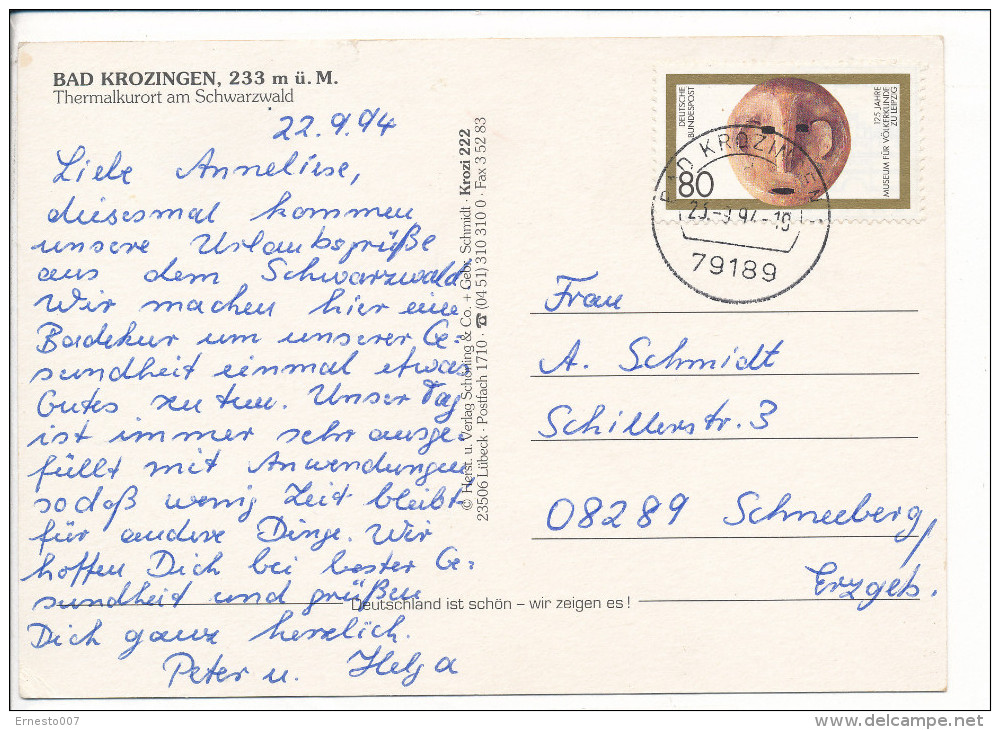 BAD KROZINGEN, 233 m ü. M.
Thermalkurort am Schwarzwald
22.9.94
Liebe Anneliese,
diesesmal kommen
unsere Urlaubsgrüße
aus dem Schwarzwald
Wir machen hier eine
Badekur um unserer Ge=
sundheit einmal etwas
Gutes zu tun. Unser Tag
ist immer sehr ausge=
füllt mit Anwendungen
sodaß wenig Zeit bleibt
für andere Dinge. Wir
hoffen Dich bei bester Ge=
sundheit und grüßen
Dich ganz herzlich.
Peter u. Helga
© Herst. u. Verlag Schöning & Co. + Gebr. Schmidt · Krozi 222
23506 Lübeck · Postfach 1710 · ☎ (04 51) 310 310 0 · Fax 3 52 83
Deutschland ist schön – wir zeigen es!
DEUTSCHE
BUNDESPOST
80
125 JAHRE
MUSEUM FÜR VÖLKERKUNDE
ZU LEIPZIG
BAD KROZINGEN
79189
Frau
A. Schmidt
Schillerstr. 3
08289 Schneeberg/
Erzgeb.
Ernesto007
www.delcampe.net